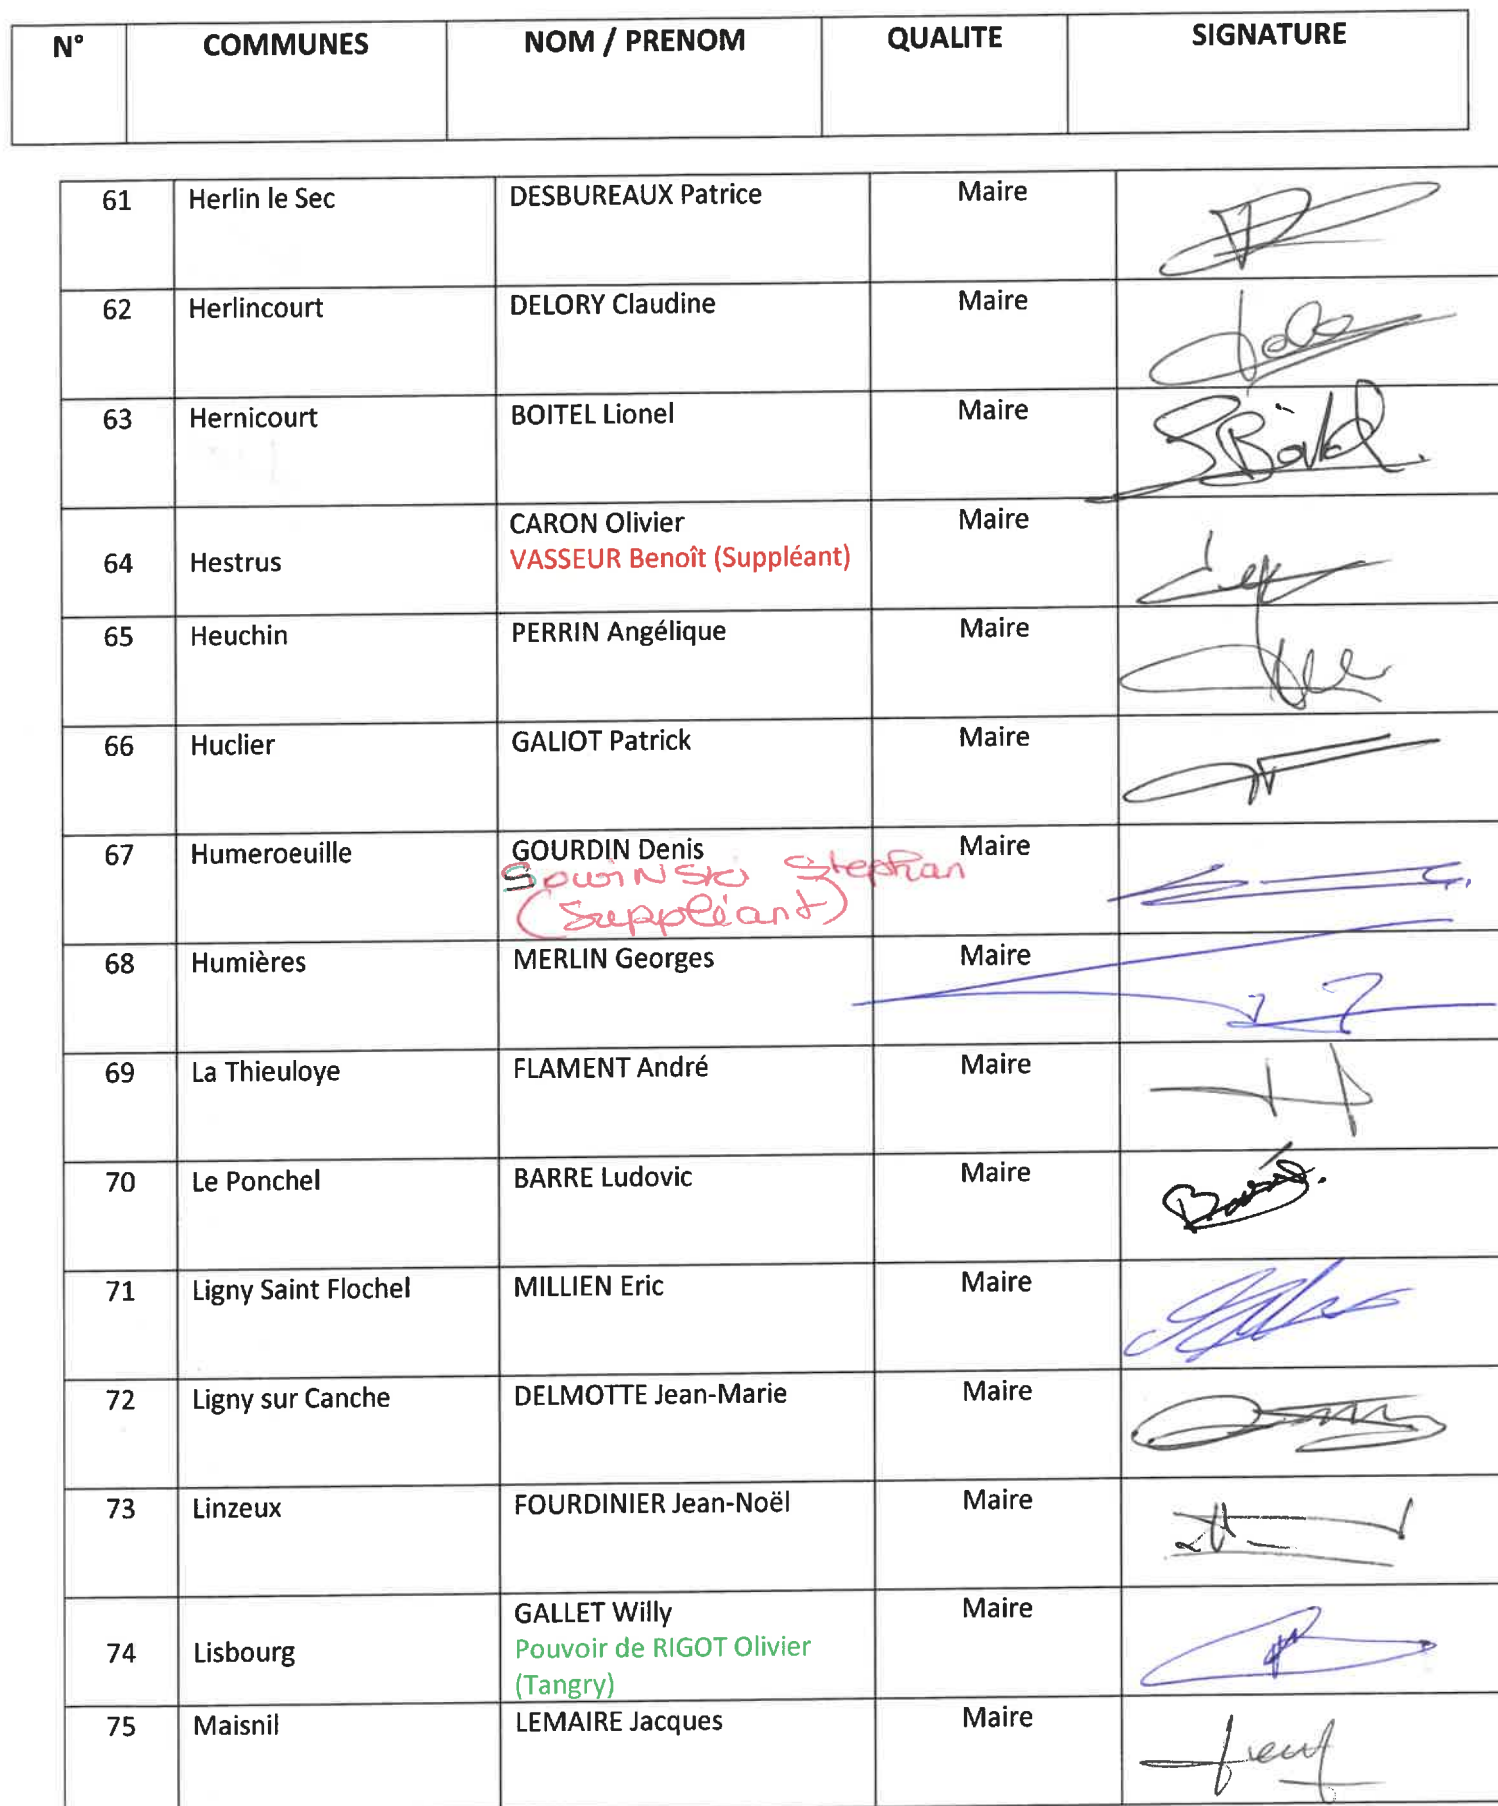 N° COMMUNES NOM / PRENOM QUALITE SIGNATURE
61 Herlin le Sec DESBUREAUX Patrice Maire
62 Herlincourt DELORY Claudine Maire
63 Hernicourt BOITEL Lionel Maire
CARON Olivier Maire
64 Hestrus VASSEUR Benoît (Suppléant)
65 Heuchin PERRIN Angélique Maire
66 Huclier GALIOT Patrick Maire
67 Humeroeuille GOURDIN Denis Maire
SowiNSki Stephan
(Suppléant)
68 Humières MERLIN Georges Maire
69 La Thieuloye FLAMENT André Maire
70 Le Ponchel BARRE Ludovic Maire
71 Ligny Saint Flochel MILLIEN Eric Maire
72 Ligny sur Canche DELMOTTE Jean-Marie Maire
73 Linzeux FOURDINIER Jean-Noël Maire
GALLET Willy Maire
74 Lisbourg Pouvoir de RIGOT Olivier
(Tangry)
75 Maisnil LEMAIRE Jacques Maire